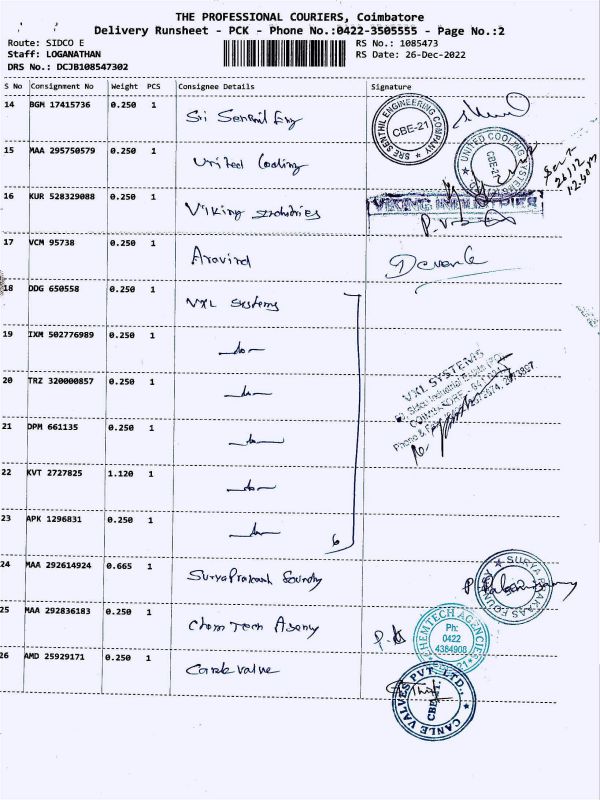 THE PROFESSIONAL COURIERS, Coimbatore
Delivery Runsheet - PCK - Phone No.:0422-3505555 - Page No.:2
Route: SIDCO E RS No.: 1085473
Staff: LOGANATHAN RS Date: 26-Dec-2022
DRS No.: DCJB108547302
S No Consignment No Weight PCS Consignee Details Signature
14 BGM 17415736 0.250 1 Sri Senthil Eng
SRE SENTHIL ENGINEERING COMPANY CBE-21
15 MAA 295750579 0.250 1 United Cooling
UNITED COOLING SYSTEMS CBE-21
26/12
12.40
16 KUR 528329088 0.250 1 Viking
VIKING INDUSTRIES
17 VCM 95738 0.250 1 Aravind
18 DDG 650558 0.250 1 VXL Systems
19 IXM 502776989 0.250 1 -do-
20 TRZ 320000857 0.250 1 -do-
VXL SYSTEMS
21 DPM 661135 0.250 1 -do-
22 KVT 2727825 1.120 1 -do-
23 APK 1296831 0.250 1 -do-
6
24 MAA 292614924 0.665 1 SuryaPrakash Foundry
SURYA PRAKASH FOUNDRY
25 MAA 292836183 0.250 1 Chem Tech Agency
CHEMTECH AGENCIES Ph: 0422 4384908
26 AMD 25929171 0.250 1 Canle valve
CANLE VALVES PVT. LTD., CBE